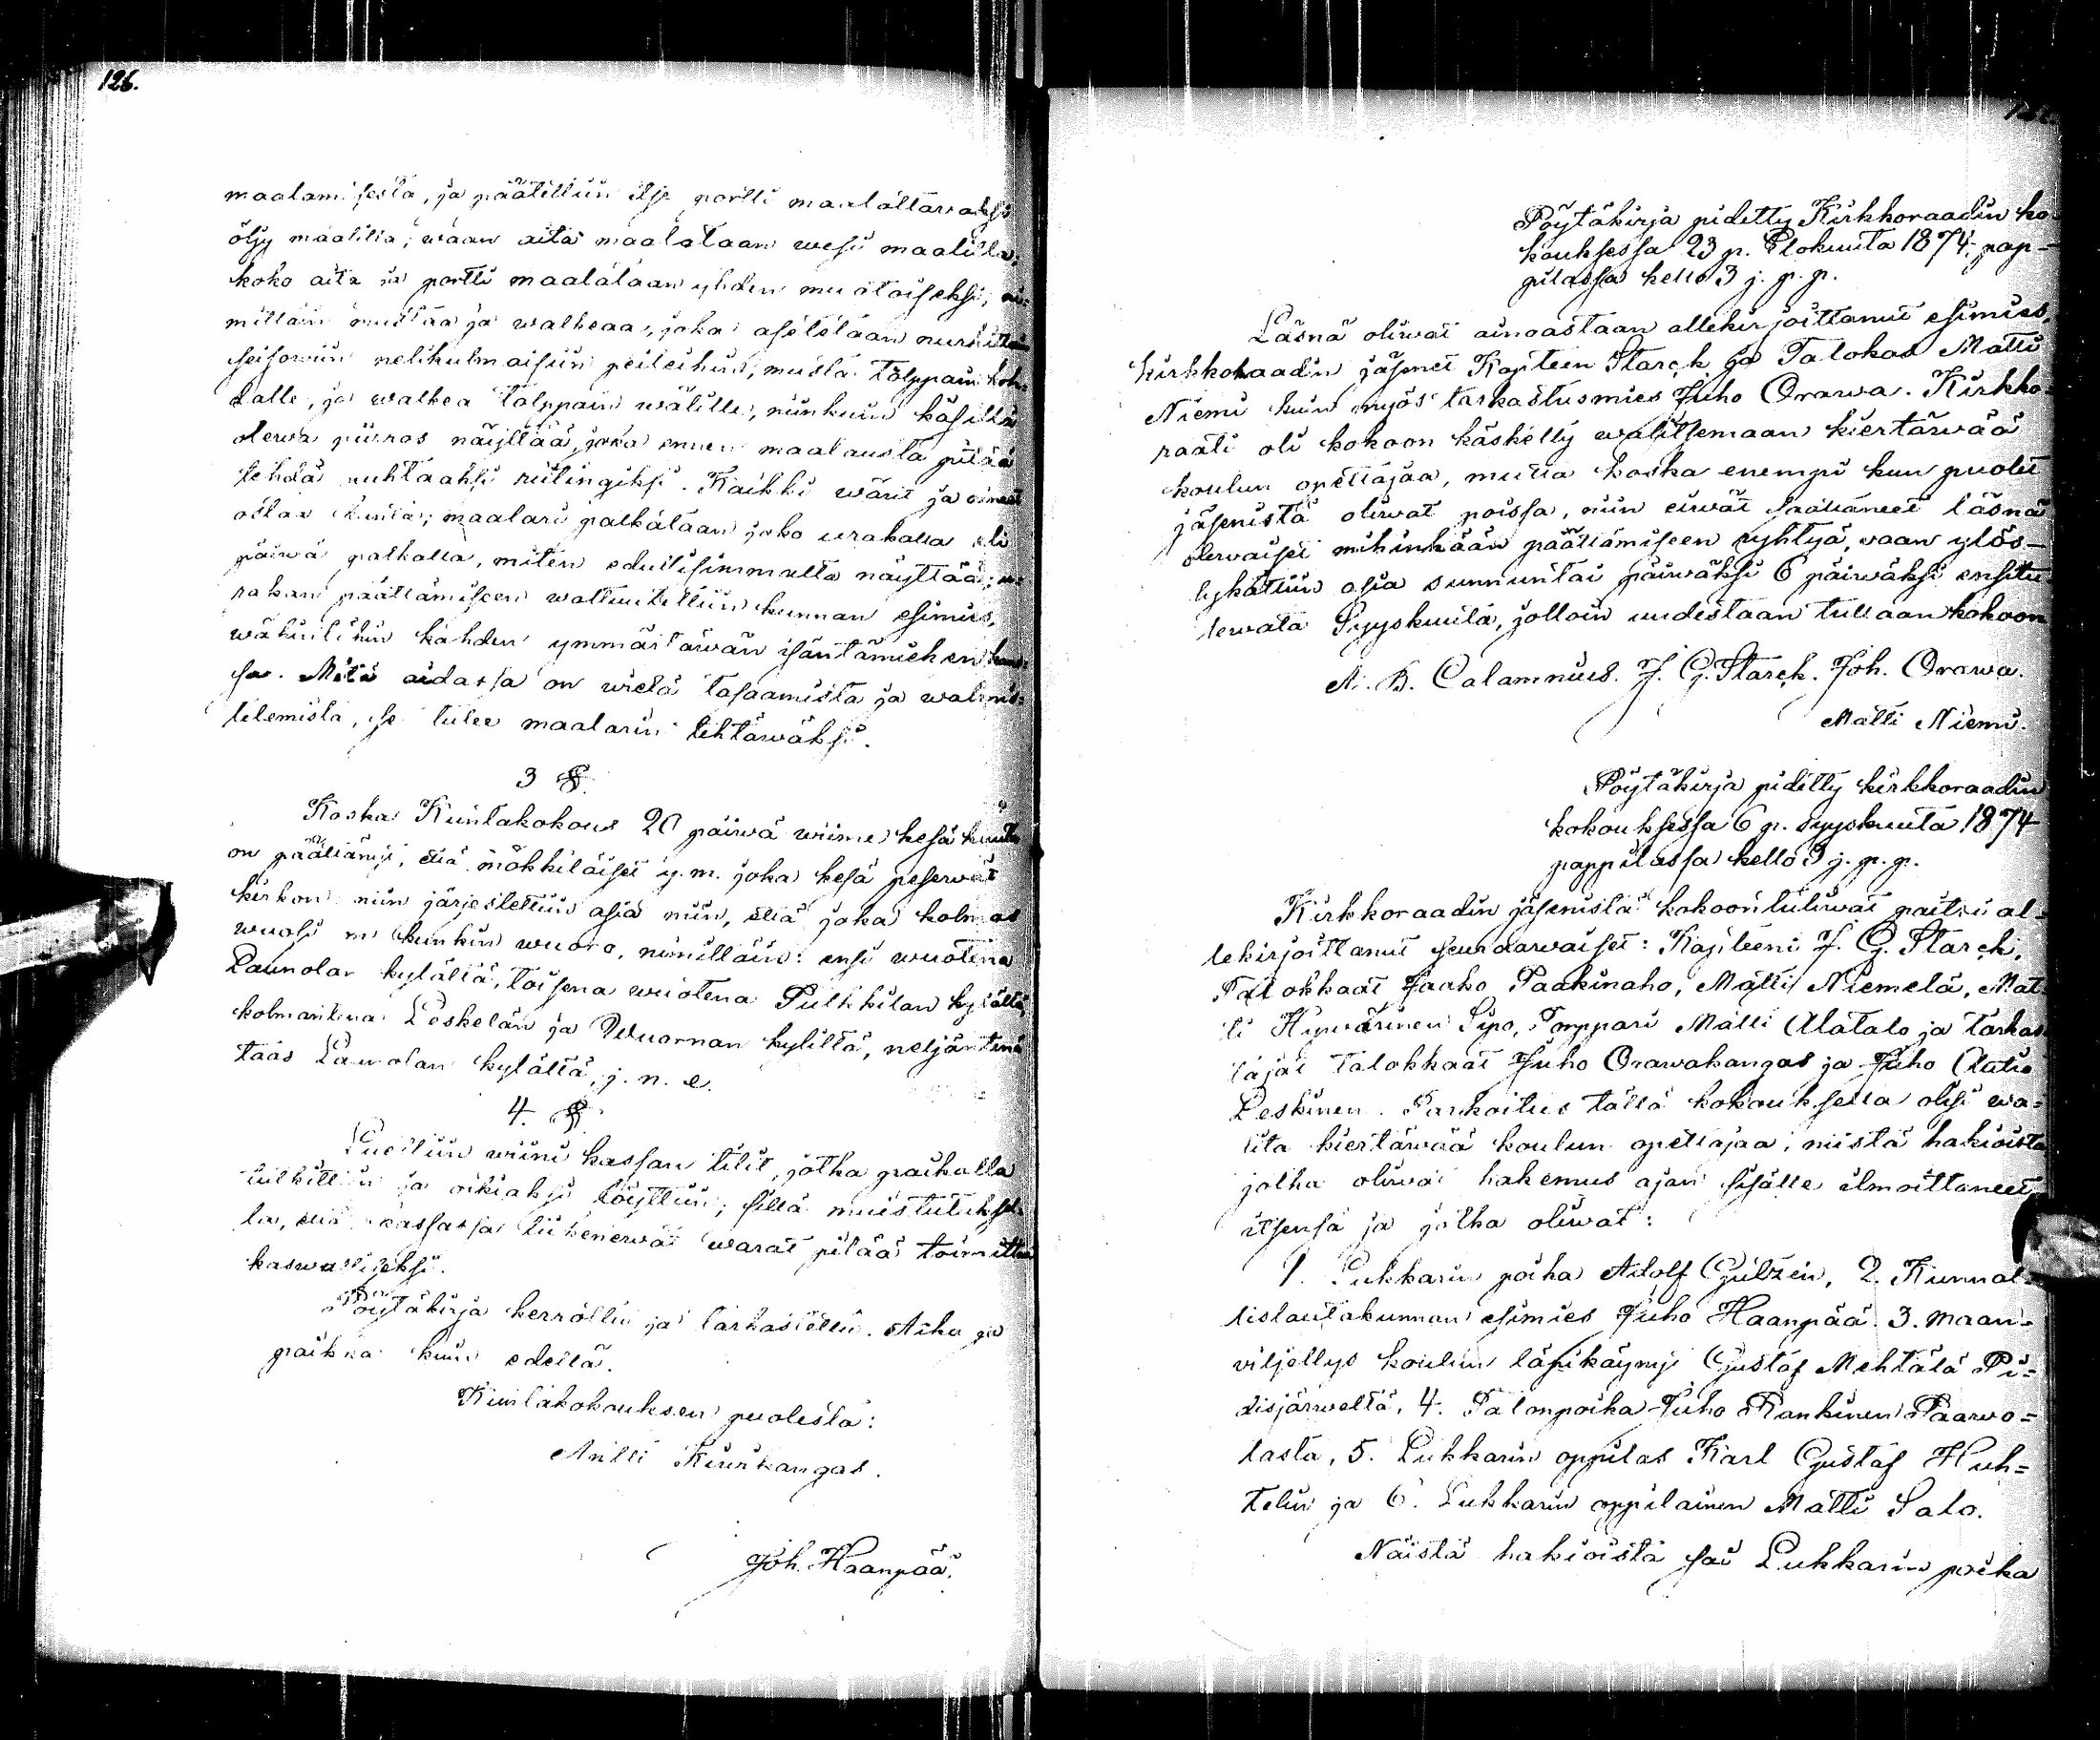 126.
maalamisesta, ja päätettiin itse portti maalattavaksi
öljy maalilla; waan aita maalataan wesi maalilla,
koko aita ja portti maalataan yhden muotoiseksi, ni=
mittäin mustaa ja walkeaa, joka asetetaan
seisowiin nelikulmaisiin peileihin, musta tolppain koh=
dalle, ja walkea tolppain wälille, niinkuin käsillä
olewa piiros näyttää, joka ennen maalausta pitää
tehdä puhtaaksi riitingiksi. Kaikki wärit ja aineet
ostaa kunta; maalari palkataan joko urakalla eli
päiwä palkalla, miten edullisimmalta näyttää; u=
rakan päättämiseen waltuutettiin kunnan esimies,
wähintihin kahden ymmärtäwän isäntämiehen kans=
sa. Mitä aidassa on wielä tasaamista ja walmis=
telemista, se tulee maalarin tehtäwäksi.
3 §.
Koska Kuntakokous 20 päiwä wiime kesäkuuta
on päättänyt, että mökkiläiset y. m. joka kesä pesewät
kirkon niin järjestettiin asia niin, että joka kolmas
wuosi on kunkin wuoro, nimittäin: ensi wuotena
Launolan kylältä, toisena wuotena Pulkkilan kylältä,
kolmantena Leskelän ja Wuornan kyliltä, neljäntenä
taas Launolan kylältä, j. n. e.
4. §.
Luettiin wiini kassan tilit, jotka paikalla
tutkittiin ja oikiaksi löyttiin; sillä muistutuksel=
la, että kassassa liikenewät warat pitää toimittaa
kaswamiseksi.
Pöytäkirja kerrottu ja tarkastettu. Aika ja
paikka kuin edellä.
Kuntakokouksen puolesta:
Antti Kiurukangas.
Joh. Haanpää.
Pöytäkirja pidetty Kirkkoraadin ko=
kouksessa 23 p. Elokuuta 1874, pap=
pilassa kello 3 j. p. p.
Läsnä oliwat ainoastaan allekirjoittanut esimies,
kirkkoraadin jäsenet Kapteen Starck ja Talokas Matti
Niemi kuin myös tarkastusmies Juho Orawa. Kirkko=
raati oli kokoon käsketty walitsemaan kiertäwää
koulun opettajaa, mutta koska enempi kun puolet
jäsenistä oliwat poissa, niin eiwät saattaneet läsnä
olewaiset mihinkään päättämiseen ryhtyä, waan ylös=
lykättiin asia sunnuntai päiwäksi 6 päiwäksi ensitu
lewata Syyskuuta, jolloin uudestaan tullaan kokoon
A. B. Calamnius. J. G. Starck. Joh. Orawa.
Matti Niemi.
Pöytäkirja pidetty kirkkoraadin
kokouksessa 6 p. syyskuuta 1874
pappilassa kello 3 j. p. p.
Kirkkoraadin jäsenistä kokoontuliwat paitsi al=
lekirjoittanut seuraawaiset: Kapteeni J. G. Starck,
Talokkaat Jaako Paakinaho, Matti Niemelä, Mat=
ti Hywärinen Sipo, Torppari Matti Alatalo ja tarkas
tajat talokkaat Juho Orawakangas ja Juho
Leskinen. Tarkoitus tällä kokouksella olisi wa=
lita kiertäwää koulun opettajaa, niistä hakioista
jotka oliwat hakemus ajan sisälle ilmoittaneet
itsensä ja jotka oliwat:
1. Lukkarin poika Adolf Gulzén, 2. Kunnal=
lislautakunnan esimies Juho Haanpää 3. maan=
viljellys koulun läpikäynyt Gustaf Mehtälä Pi=
disjärweltä, 4. Talonpoika Juho Rankinen Paawo=
lasta, 5. Lukkarin oppilas Karl Gustaf Huh=
telin ja 6. Lukkarin oppilainen Matti Salo.
Näistä hakioista sai Lukkarin poika